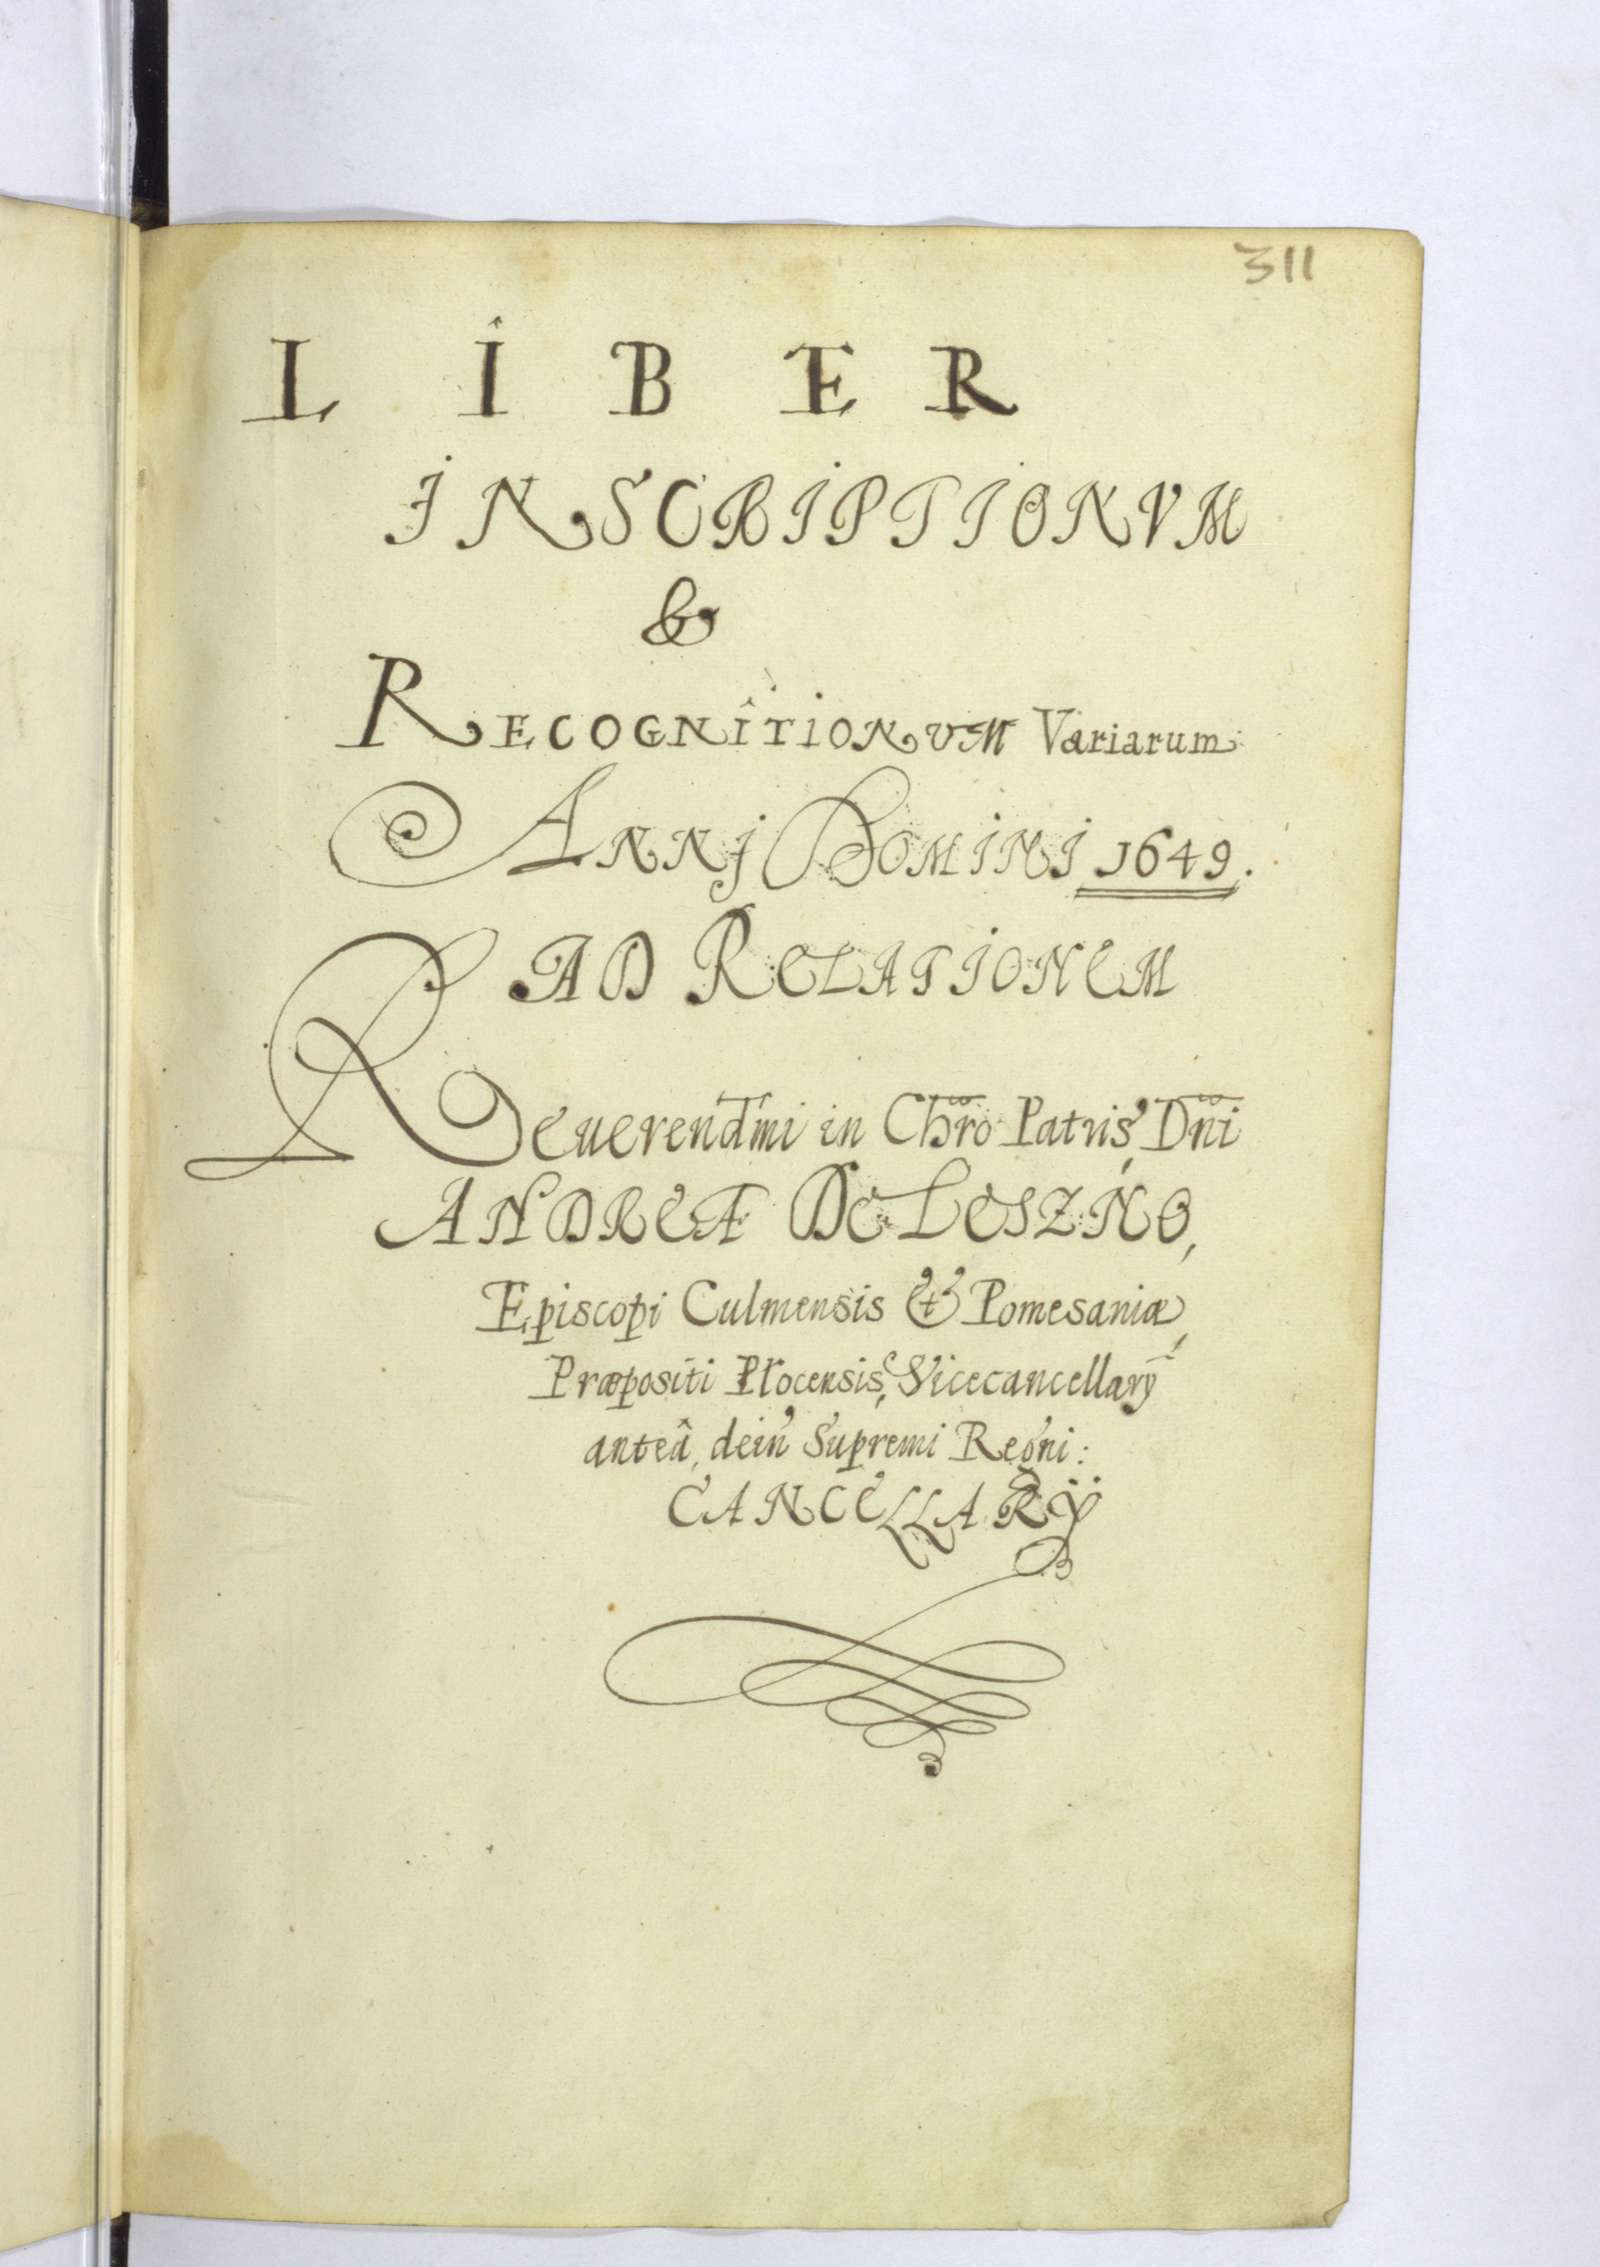 311
LIBER
INSCRIPTIONVM
&
RECOGNITIONVM Variarum
ANNj DOMINI 1649.
AD RELATIONEM
Reuerendmi in Chro Patris, Dni
ANDREÆ DE LESZNO,
Episcopi Culmensis & Pomesaniæ,
Præpositi Plocensis, Vicecancellarÿ
anteâ, dein Supremi Regni:
CANCELLARÿ